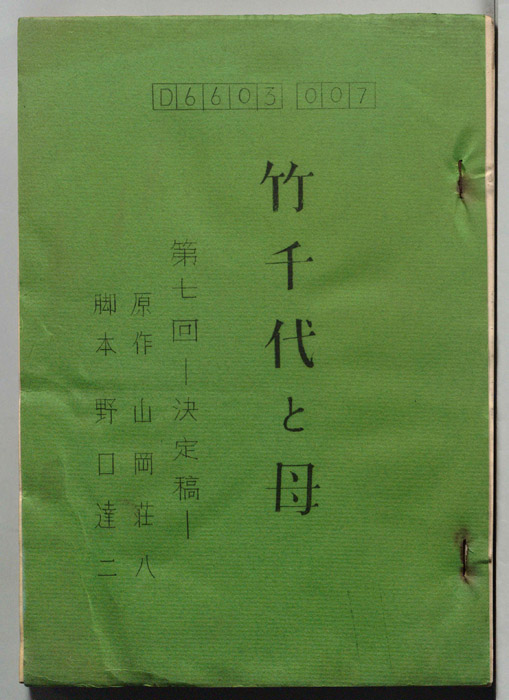 D6603 007
竹千代と母
第七回―決定稿―
原作 山岡荘八
脚本 野口達二